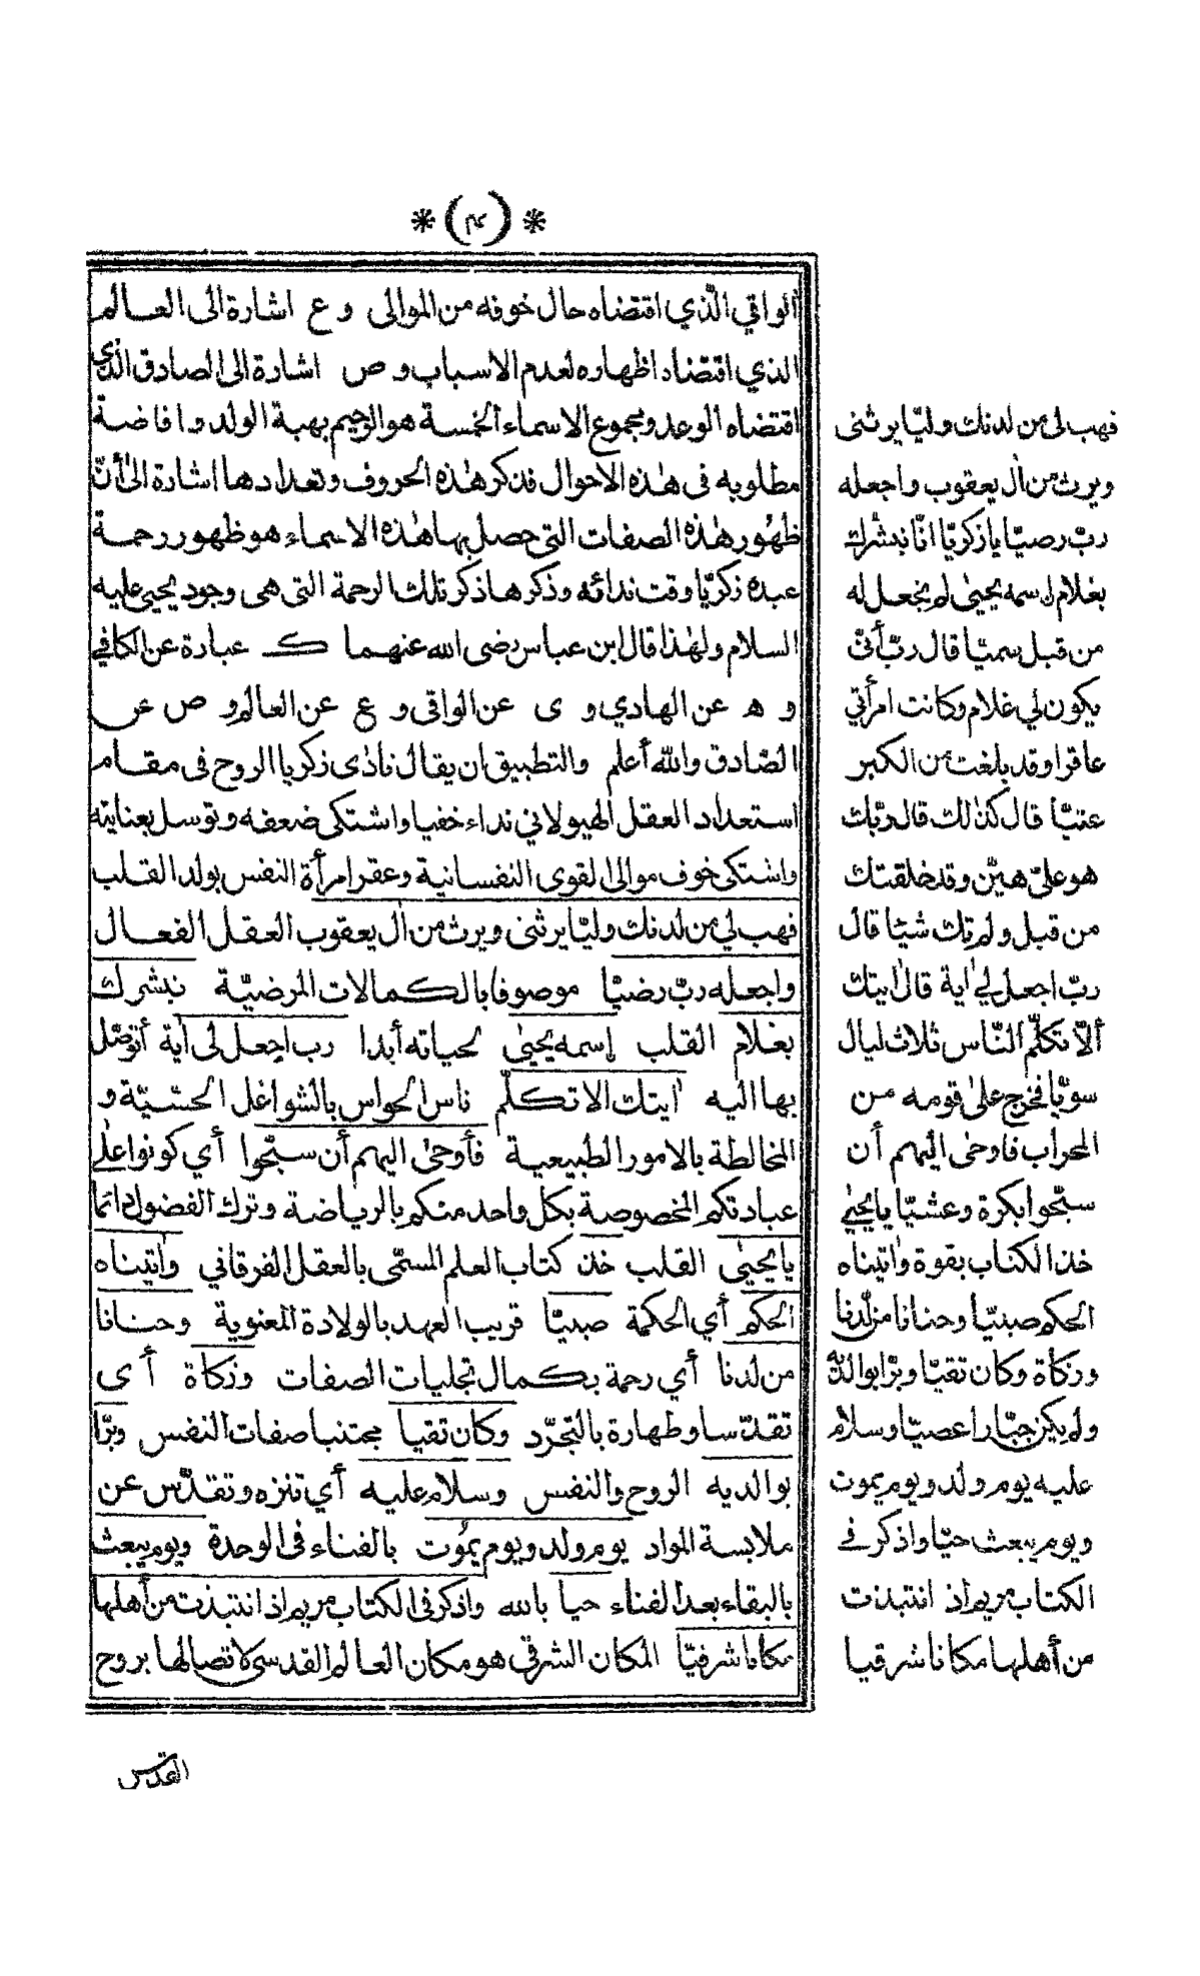 * (٤) *
الواقي الّذي اقتضاه حال خوفه من الموالى و ع اشارة الى العالم
الذي اقتضاه اظهاره لعدم الاسباب و ص اشارة الى الصادق الذي
اقتضاه الوعد ومجموع الاسماء الخمسة هو الرحيم بهبة الولد وافاضة
مطلوبه فى هٰذه الاحوال فذكر هٰذه الحروف وتعدادها اشارة الىٰ أنّ
ظهُور هٰذه الصفات التى حصل بها هٰذه الاسماء هو ظهور رحمة
عبده زكريّا وقت ندائه وذكرها ذكر تلك الرحمة التى هى وجود يحيى عليه
السلام ولهٰذا قال ابن عباس رضى الله عنهما ك عبارة عن الكافي
و ه عن الهادي و ى عن الواقى و ع عن العالم و ص عن
الصّادق والله أعلم والتطبيق ان يقال نادٰى زكريا الروح فى مقام
استعداد العقل الهيولاني نداء خفيا واشتكى ضعفه وتوسل بعنايته
واشتكى خوف موالى القوى النفسانية وعقر امرأة النفس بولد القلب
فهب لي من لدنك وليّا يرثنى ويرث من اٰل يعقوب العقل الفعال
واجعله ربّ رضيّا موصوفا بالكمالات المرضيّة نبشرك
بغلام القلب إسمه يحيىٰ لحياته أبدا رب اجعل لى اٰية أتوصّل
بها اليه اٰيتك الا تكلّم ناس الحواس بالشواغل الحسّيّة و
المخالطة بالامور الطبيعية فأوحىٰ اليهم أن سبّحوا أي كونوا علىٰ
عبادتكم المخصوصة بكل واحد منكم بالرياضة وترك الفضول دائما
يا يحيىٰ القلب خذ كتاب العلم المسمّى بالعقل الفرقاني واٰتيناه
الحكم أي الحكمة صبيّا قريب العهد بالولادة المعنوية وحنانا
من لدنا أي رحمة بكمال تجليات الصفات وزكاة أى
تقدّسا وطهارة بالتجرّد وكان تقيا مجتنبا صفات النفس وبرّا
بوالديه الروح والنفس وسلام عليه أي تنزه وتقدّس عن
ملابسة المواد يوم ولد ويوم يمُوت بالفناء فى الوحدة ويوم يبعث
بالبقاء بعد الفناء حيا بالله واذكر فى الكتاب مريم اذ انتبذت من أهلها
مكانا شرقيّا المكان الشرقي هو مكان العالم القدسى لاتصالها بروح
القدس
فهب لى من لدنك وليّا يرثنى
ويرث من اٰل يعقوب واجعله
ربّ رضيّا يا زكريّا انّا نبشّرك
بغلام اسمه يحيىٰ لم نجعل له
من قبل سميّا قال ربّ أنّى
يكون لي غلام وكانت امرأتي
عاقرا وقد بلغت من الكبر
عتيّا قال كذٰلك قال ربّك
هو علىّ هيّن وقد خلقتك
من قبل ولم تك شيئا قال
ربّ اجعل لى اٰية قال اٰيتك
ألّا تكلّم النّاس ثلاث ليال
سويّا فخرج علىٰ قومه من
المحراب فاوحىٰ اليهم أن
سبّحوا بكرة وعشيّا يا يحيىٰ
خذ الكتاب بقوة واٰتيناه
الحكم صبيّا وحنانا من لّدنا
وزكاة وكان تقيّا وبرّا بوالديه
ولم يكن جبّارا عصيّا وسلام
عليه يوم ولد ويوم يموت
ويوم يبعث حيّا واذكر فى
الكتاب مريم اذ انتبذت
من أهلها مكانا شرقيا